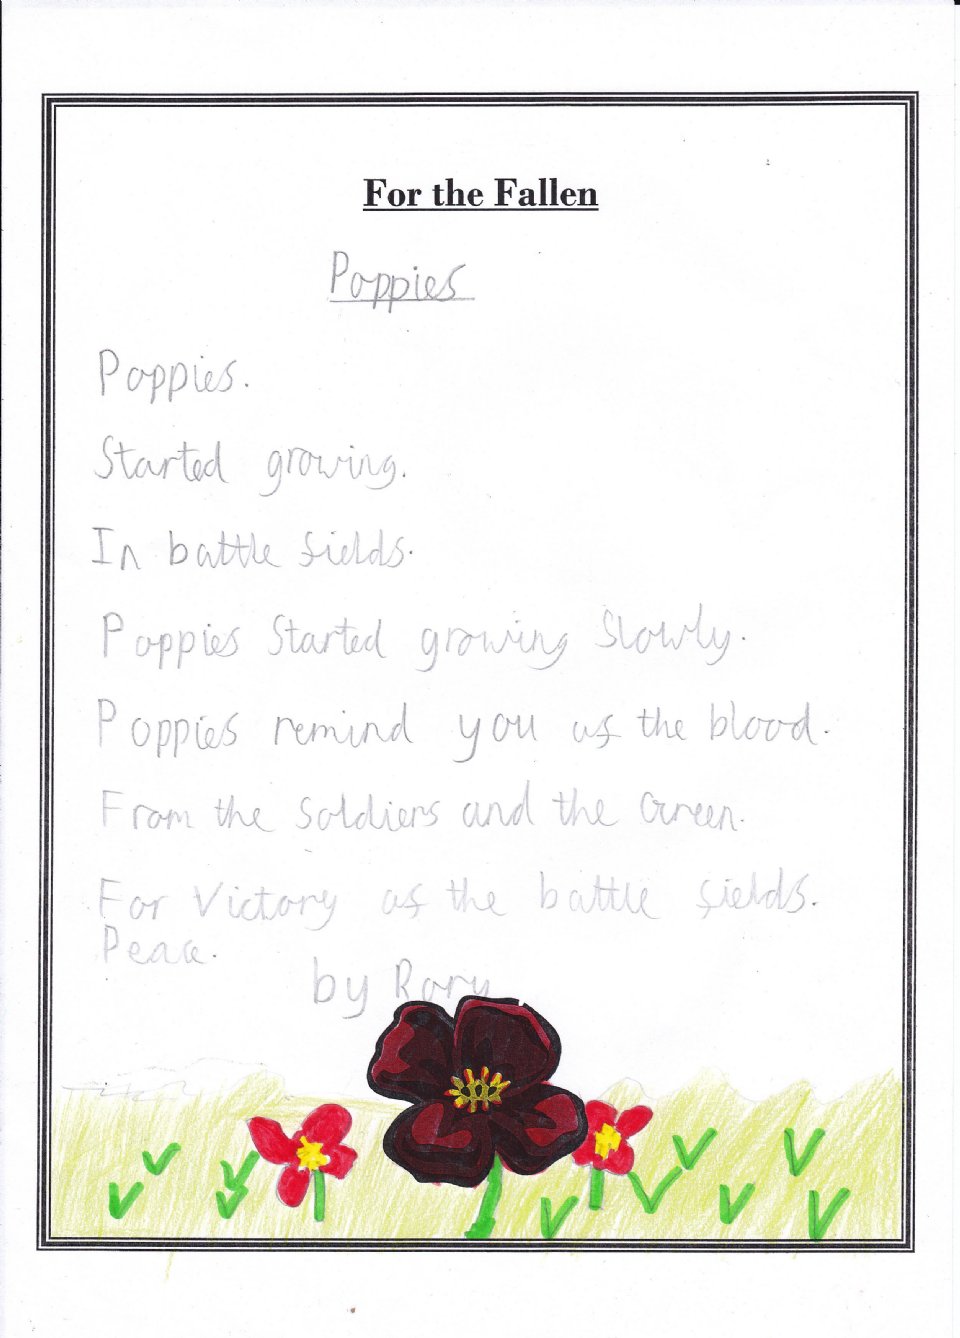 For the Fallen
Poppies
Poppies.
Started growing.
In battle fields.
Poppies Started growing Slowly.
Poppies remind you of the blood.
From the Soldiers and the Green.
For Victory of the battle fields.
Peace.
by Rory